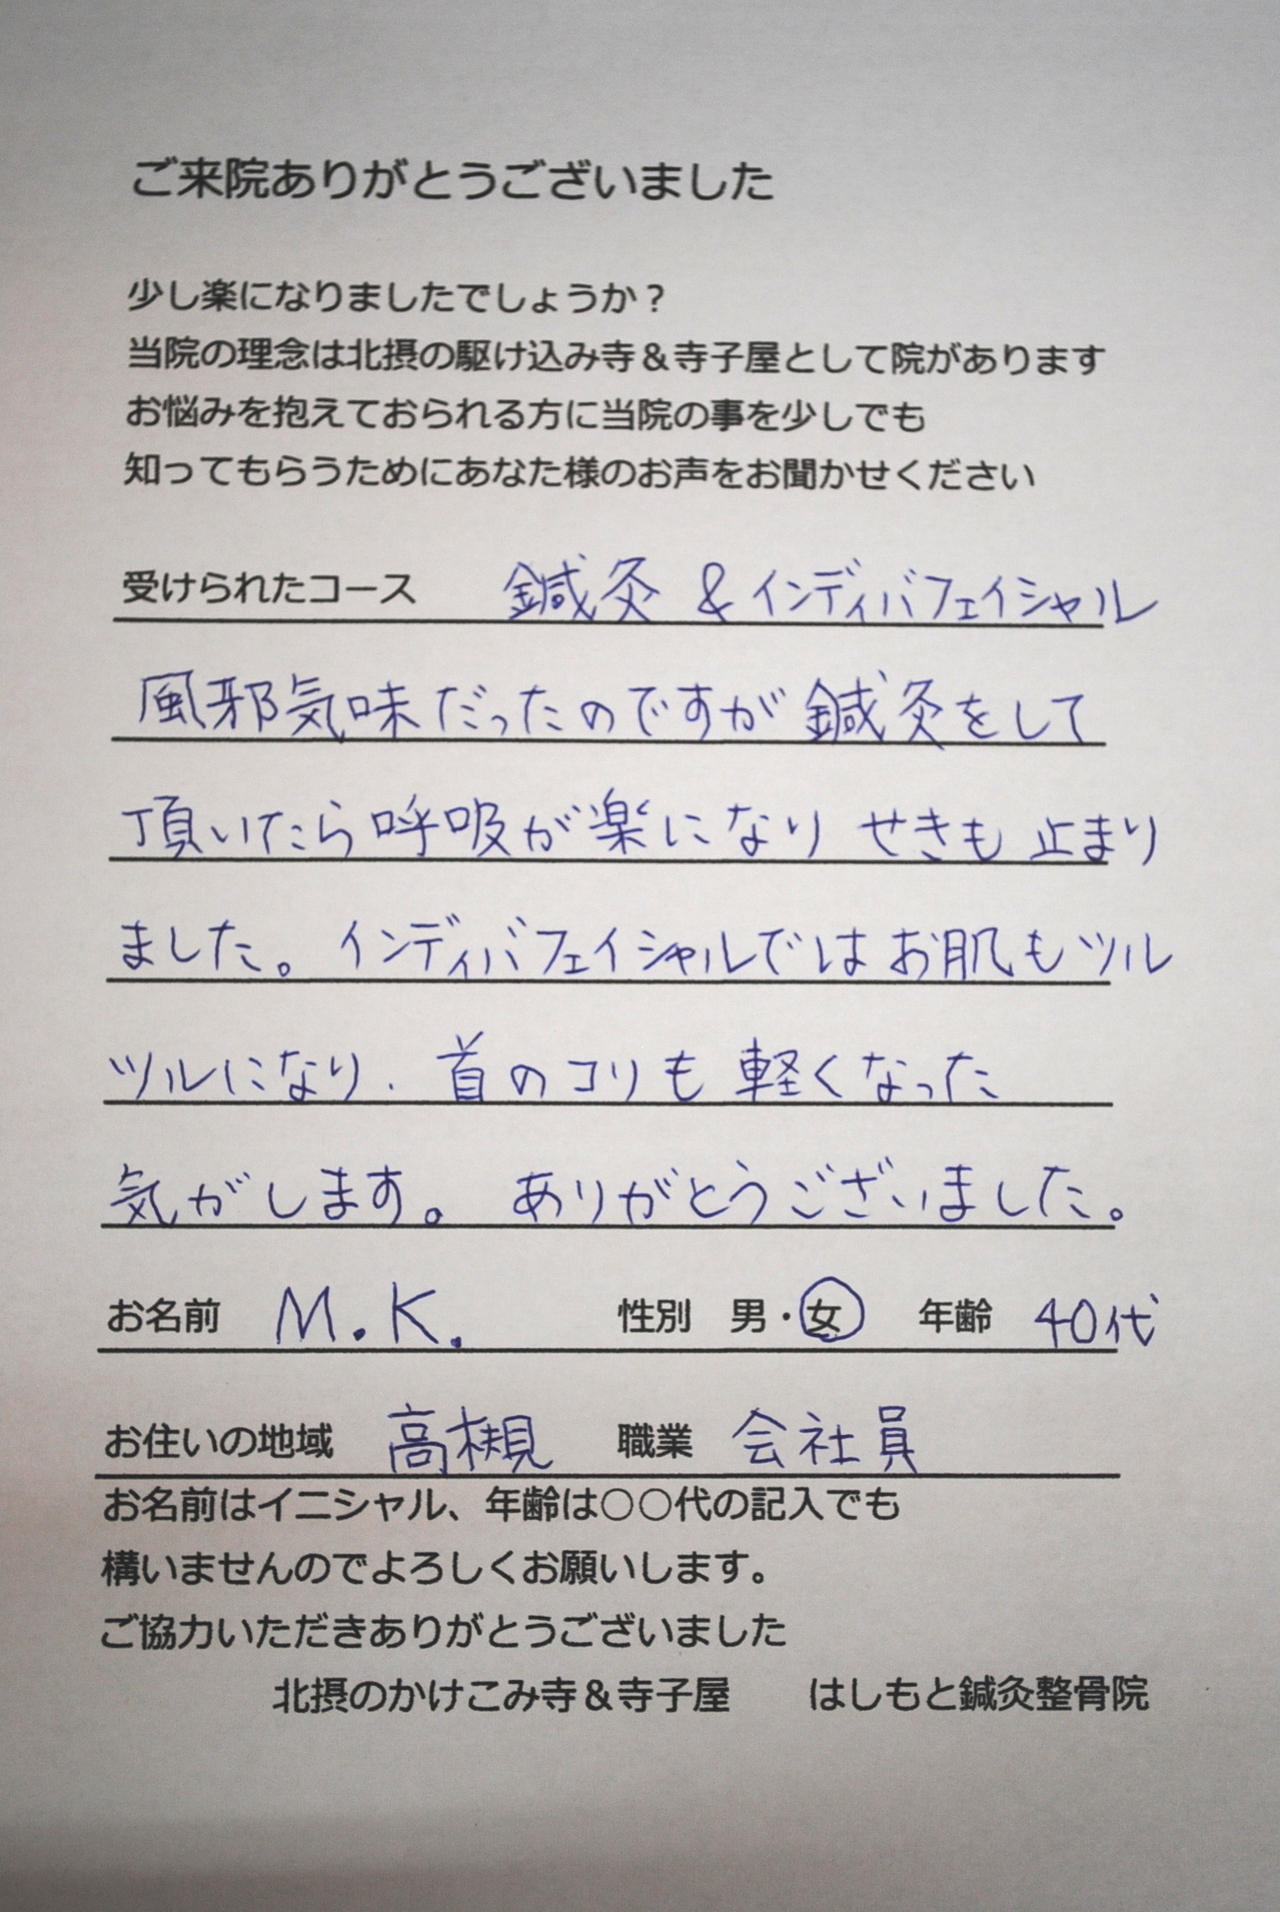 ご来院ありがとうございました
少し楽になりましたでしょうか？
当院の理念は北摂の駆け込み寺＆寺子屋として院があります
お悩みを抱えておられる方に当院の事を少しでも
知ってもらうためにあなた様のお声をお聞かせください
受けられたコース 鍼灸 & インディバフェイシャル
風邪気味だったのですが鍼灸をして
頂いたら呼吸が楽になり せきも止まり
ました。 インディバフェイシャルではお肌もツル
ツルになり、首のコリも軽くなった
気がします。 ありがとうございました。
お名前 M.K. 性別 男・女 年齢 40代
お住いの地域 高槻 職業 会社員
お名前はイニシャル、年齢は○○代の記入でも
構いませんのでよろしくお願いします。
ご協力いただきありがとうございました
北摂のかけこみ寺＆寺子屋 はしもと鍼灸整骨院